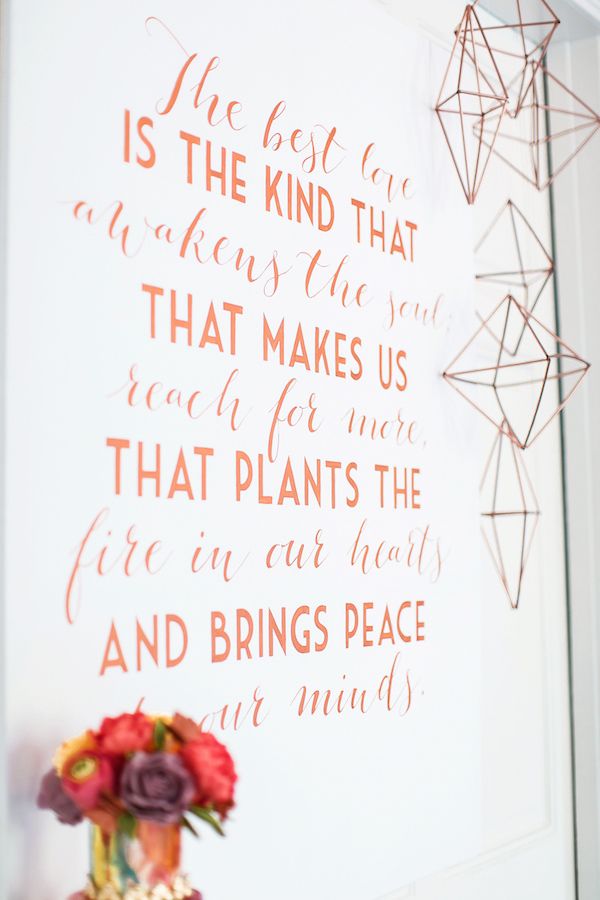 The best love
IS THE KIND THAT
awakens the soul;
THAT MAKES US
reach for more,
THAT PLANTS THE
fire in our hearts
AND BRINGS PEACE
our minds.